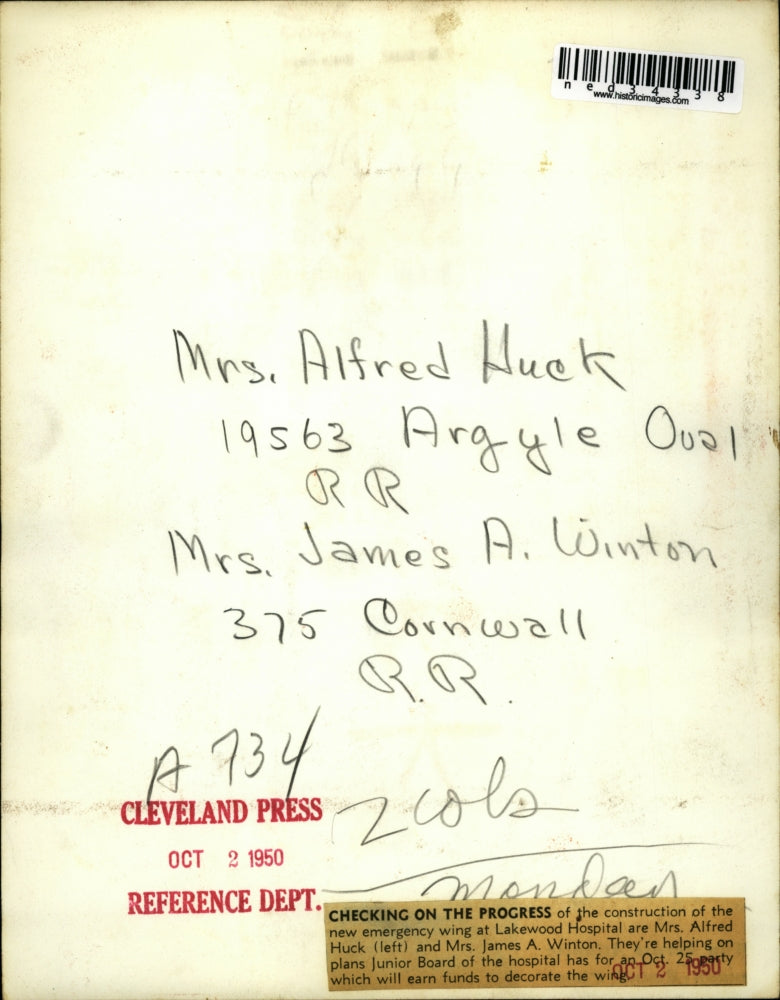 ned34338
www.historicimages.com
Mrs. Alfred Huck
19563 Argyle Oval
RR
Mrs. James A. Winton
375 Cornwall
R.R.
A 734
CLEVELAND PRESS
OCT 2 1950
REFERENCE DEPT.
2 cols
Monday
CHECKING ON THE PROGRESS of the construction of the
new emergency wing at Lakewood Hospital are Mrs. Alfred
Huck (left) and Mrs. James A. Winton. They're helping on
plans Junior Board of the hospital has for an Oct. 25 party
which will earn funds to decorate the wing.
OCT 2 1950